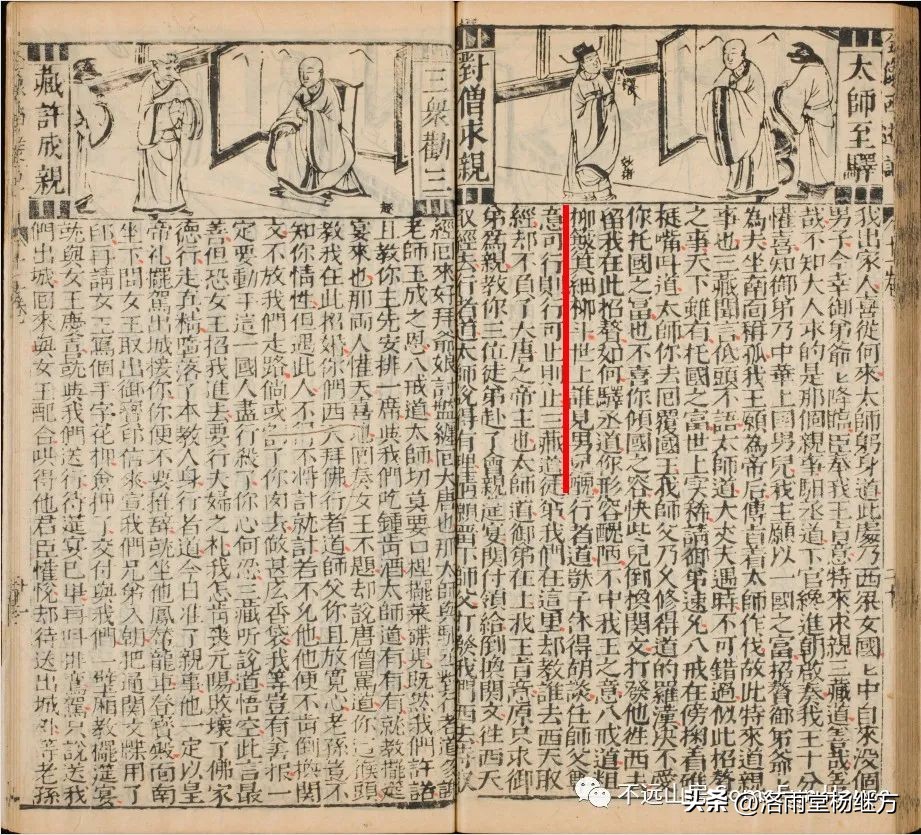 太師至驛
對僧求親
我出家人喜從何來太師躬身道此處乃西梁女國匕中自來没個
男子今幸御弟爺匕降臨臣奉我王旨意特來求親三藏道善哉善
哉不知大人求的是那個親事馹丞道下官纔進朝啟奏我王十分
懽喜知御弟乃中華上國男兒我主願以一國之富招贅御弟爺匕
為夫坐南面稱孤我王願為帝后傳旨着太師作伐故此特來道親
事也三藏聞言低頭不語太師道大丈夫遇時不可錯過似此招贅
之事天下雖有托國之富世上实稀請御弟速允八戒在傍掬着碓
挺嘴叫道太師你去囬覆國王我師父乃久修得道的羅漢决不愛
你托國之富也不喜你傾國之容快些兒倒換関文打發他徃西去
留我在此招贅如何驛丞道你形容醜陋不中我王之意八戒道粗
柳簸箕細柳斗世上誰見男兒醜行者道獃子休得胡談任師父尊
意可行則行可止則止三藏道徒弟我們在這里却教誰去西天取
經却不負了大唐之帝主也太師道御弟在上我王旨意原只求御
弟為親教你三位徒弟赴了會親筵宴関付領給倒換関文徃西天
取經去行者道太師說得有理情願留下師父打發我們去西天取
三衆勸三
藏許成親
經回來好拜爺娘討盤纏回大唐也那太師與馹丞對行者道多謝
老師玉成之恩八戒道太師切莫要口裡擺菜碟兒既然我們許諾
且教你主先安排一席與我們吃鍾肯酒太師道有有有就教擺筵
宴來也那兩人懽天喜地囬奏女王不題却說唐僧罵道你這猴頭
教我在此招婚你們西天拜佛行者道師父你且放寬心老孫豈不
知你情性但遇此人不得不將計就計若不允他他便不肯倒換関
文不放我們走路倘或了你肉去做甚麽香袋我等豈有善報一
定要動手這一國人盡行殺了你心何忍三藏听說道悟空此言最
善但恐女王招我進去要行夫婦之礼我怎肯喪元陽敗壞了佛家
德行走五精墮落了本教人身行者道今日准了親事他一定以皇
帝礼擺駕出城接你你便不要推辞就坐他鳳輦龍車登寳殿面南
坐下問女王取出御寳印信來宣我們兄弟入朝把通関文牒用了
印再請女王寫個手字花押僉押了交付與我們一壁厢教擺筵宴
就與女王慶喜就與我們送行待筵宴已畢再叫排鑾駕只說送我
們出城囬來與女王配合哄得他君臣懽悦却待送出城外等老孫
不远山
头条 @洛雨堂杨继方